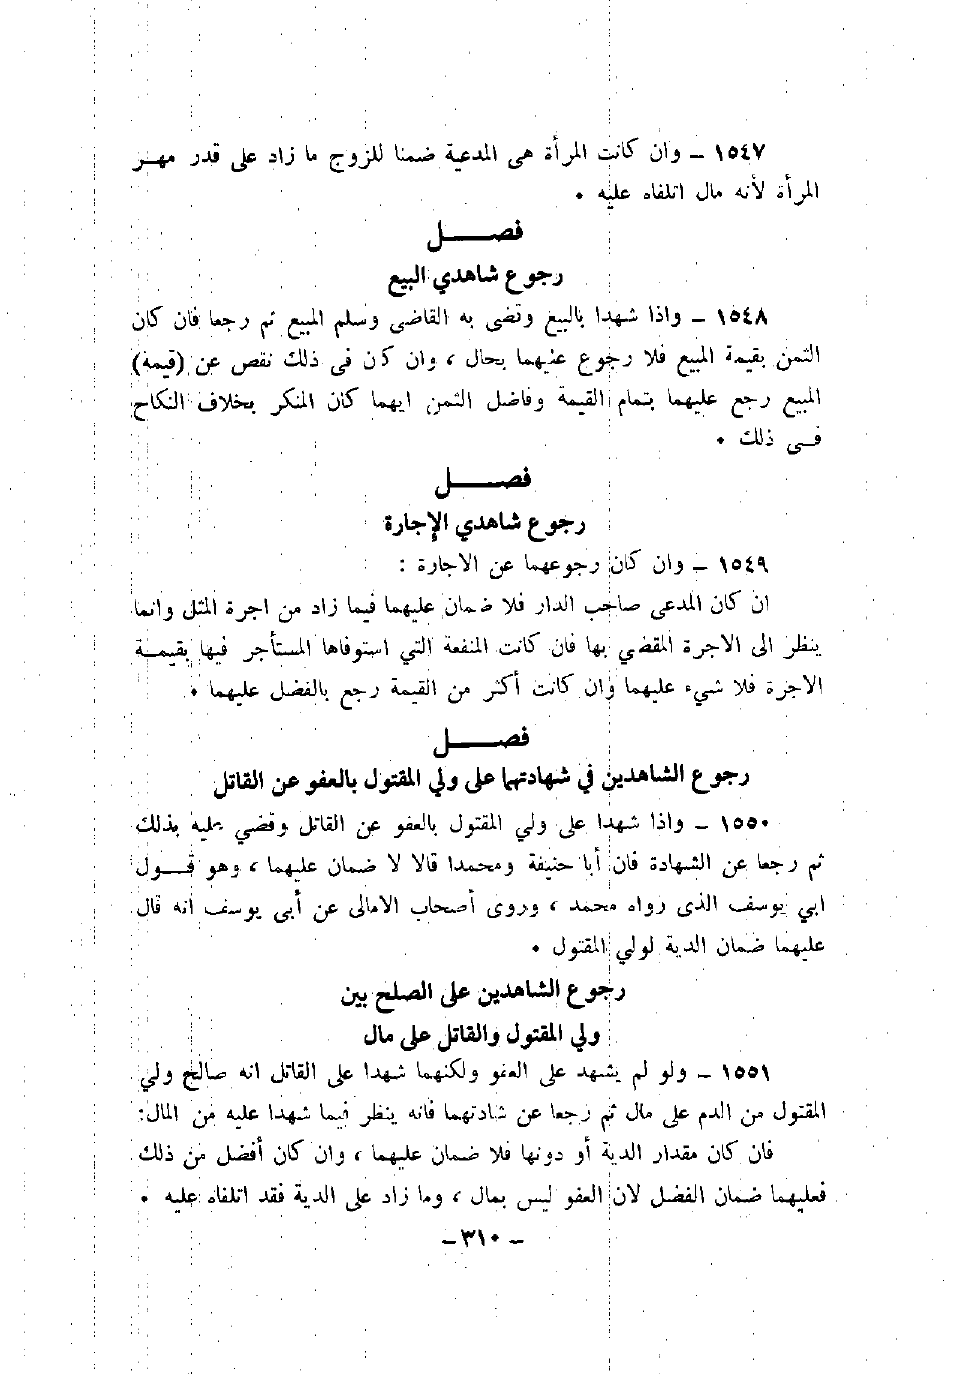 ١٥٤٧ – وان كانت المرأة هى المدعية ضمنا للزوج ما زاد على قدر مهــر
المرأة لأنه مال اتلفاه عليه ٠
فصـــــل
رجوع شاهدي البيع
١٥٤٨ – واذا شهدا بالبيع وقضى به القاضى وسلم المبيع ثم رجعا فان كان
الثمن بقيمة المبيع فلا رجوع عليهما بحال ، وان كان فى ذلك نقص عن (قيمة)
المبيع رجع عليهما بتمام القيمة وفاضل الثمن ايهما كان المنكر بخلاف النكاح
فــى ذلك ٠
فصـــــل
رجوع شاهدي الإجارة
١٥٤٩ – وان كان رجوعهما عن الاجارة :
ان كان المدعى صاحب الدار فلا ضمان عليهما فيما زاد من اجرة المثل وانما
ينظر الى الاجرة المقضي بها فان كانت المنفعة التي استوفاها المستأجر فيها بقيمــة
الاجرة فلا شيء عليهما وان كانت أكثر من القيمة رجع بالفضل عليهما ٠
فصـــــل
رجوع الشاهدين في شهادتهما على ولي المقتول بالعفو عن القاتل
١٥٥٠ – واذا شهدا على ولي المقتول بالعفو عن القاتل وقضي عليه بذلك
ثم رجعا عن الشهادة فان أبا حنيفة ومحمدا قالا لا ضمان عليهما ، وهو قــول
ابي يوسف الذى رواه محمد ، وروى أصحاب الامالى عن أبى يوسف انه قال
عليهما ضمان الدية لولي المقتول ٠
رجوع الشاهدين على الصلح بين
ولي المقتول والقاتل على مال
١٥٥١ – ولو لم يشهد على العفو ولكنهما شهدا على القاتل انه صالح ولي
المقتول من الدم على مال ثم رجعا عن شادتهما فانه ينظر فيما شهدا عليه من المال:
فان كان مقدار الدية أو دونها فلا ضمان عليهما ، وان كان أفضل من ذلك
فعليهما ضمان الفضل لان العفو ليس بمال ، وما زاد على الدية فقد اتلفاه عليه ٠
– ٣١٠ –